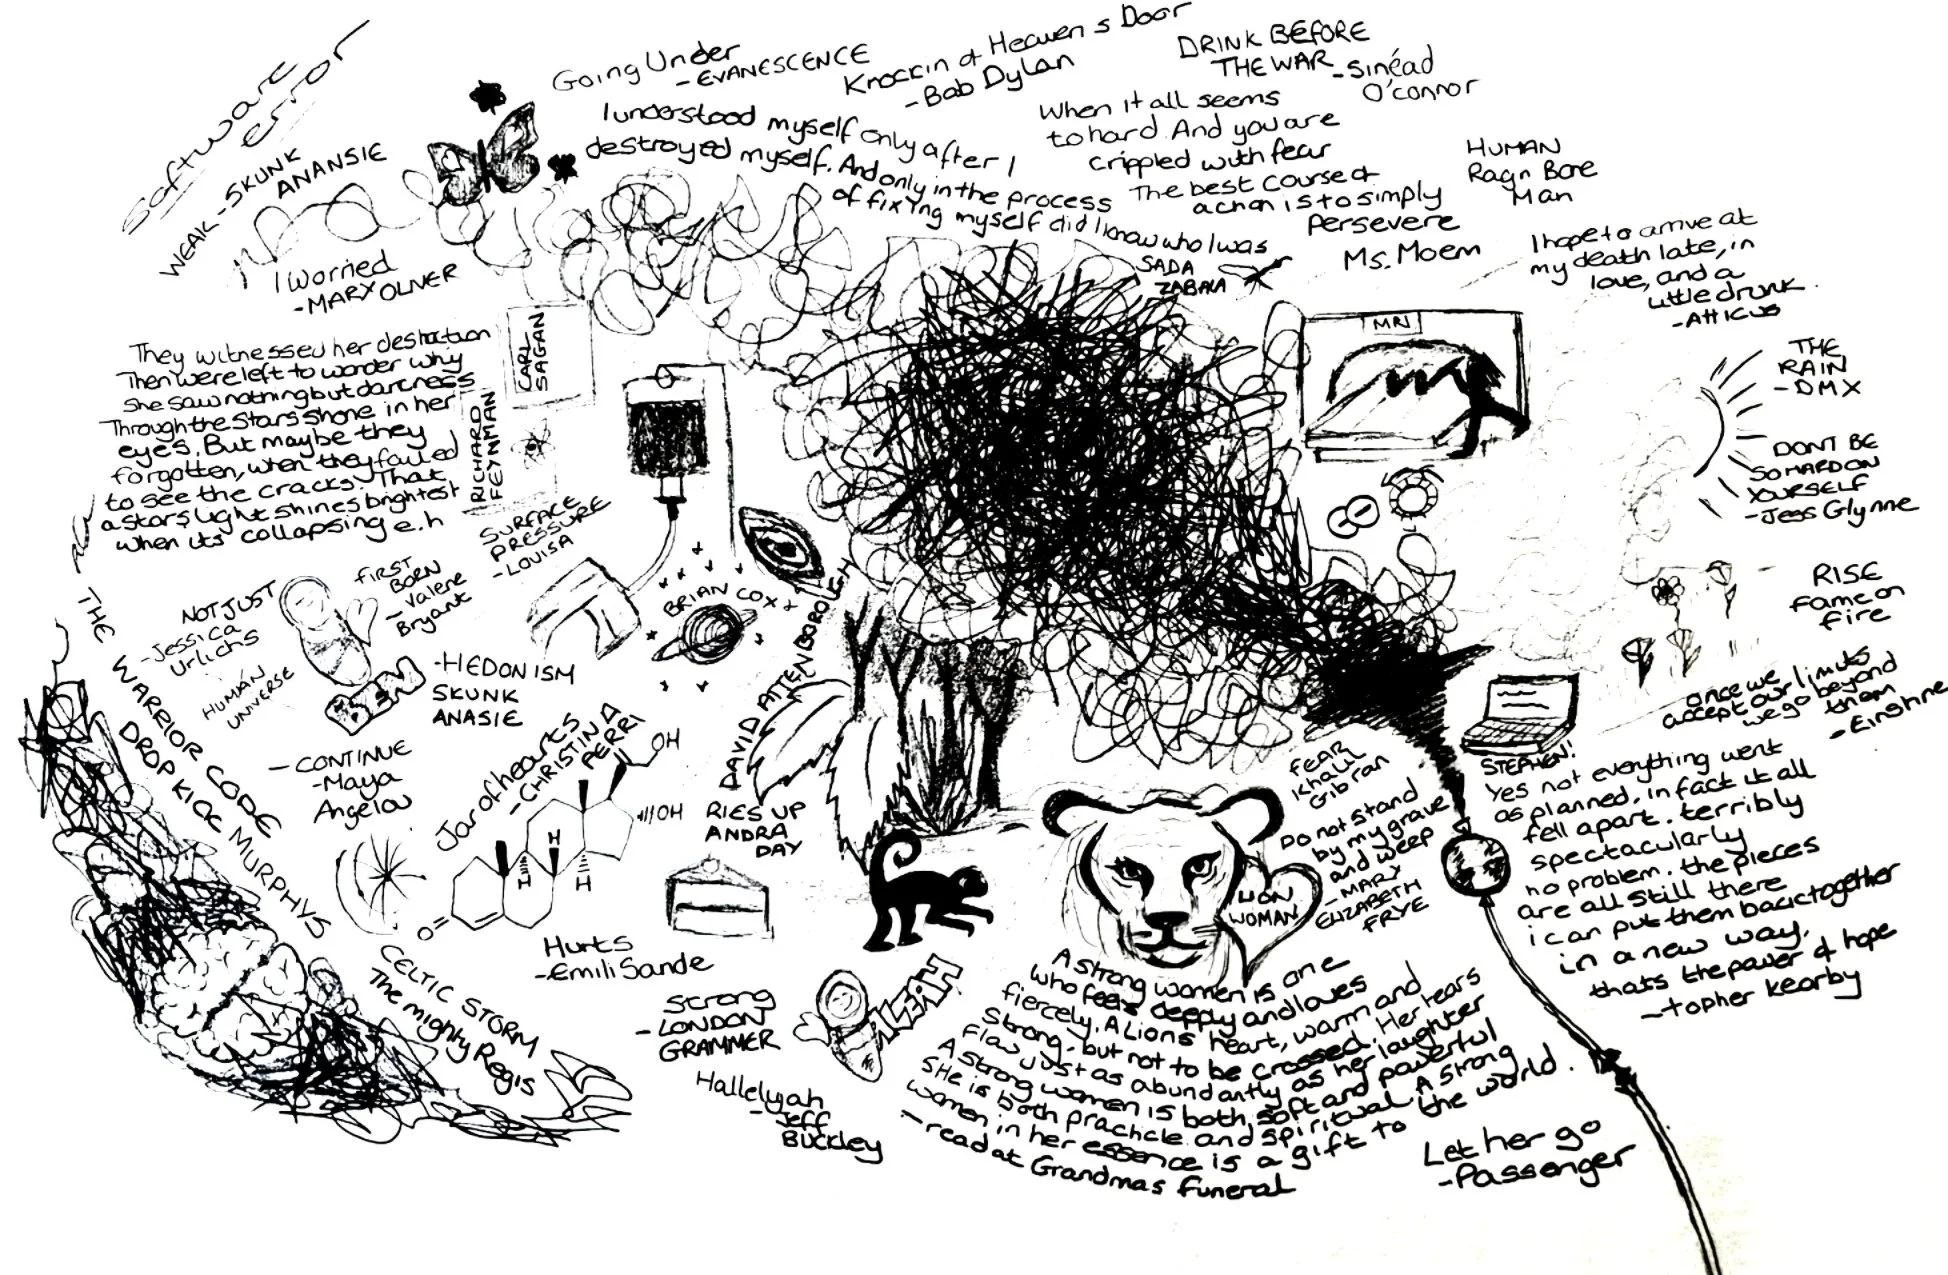 Software
error
WEAK - SKUNK
ANANSIE
I worried
- MARY OLIVER
Going Under
- EVANESCENCE
Knockin at Heavens Door
- Bob Dylan
DRINK BEFORE
THE WAR - Sinéad
O'connor
I understood myself only after I
destroyed myself. And only in the process
of fixing myself did I know who I was
SADA
ZABALA
When it all seems
to hard. And you are
crippled with fear
The best course of
action is to simply
Persevere
Ms. Moem
HUMAN
Ragn Bone
Man
I hope to arrive at
my death late, in
love, and a
little drunk.
- Atticus
They witnessed her destruction
Then were left to wonder why
She saw nothing but darkness
Through the stars shone in her
eyes. But maybe they
forgotten, when they failed
to see the cracks. That
a stars light shines brightest
when its collapsing e.h
CARL
SAGAN
RICHARD
FEYNMAN
MRI
THE
RAIN
- DMX
DONT BE
SO HARD ON
YOURSELF
- Jess Glynne
SURFACE
PRESSURE
- LOUISA
BRIAN COX
DAVID ATTENBOROUGH
NOT JUST
- Jessica
Urlichs
FIRST
BORN
- Valerie
Bryant
HUMAN
UNIVERSE
- HEDONISM
SKUNK
ANASIE
THE WARRIOR CODE
DROPKICK MURPHYS
- CONTINUE
- Maya
Angelou
Jar of hearts
- CHRISTINA
PERRI
OH
OH
H
H
H
O
RIES UP
ANDRA
DAY
RISE
fame on
fire
once we
accept our limits
we go beyond
them
STEPHEN!
Yes not everything went
as planned. in fact it all
fell apart. terribly
spectacularly
no problem. the pieces
are all still there
i can put them back together
in a new way.
thats the power of hope
- Topher Kearby
FEAR
Khalil
Gibran
Do not stand
by my grave
and weep
- MARY
ELIZABETH
FRYE
LION
WOMAN
CELTIC STORM
The mighty Regis
Hurts
- Emili Sande
Strong
- LONDON
GRAMMER
Hallelyjah
- Jeff
BUCKLEY
A strong women is one
who feels deeply and loves
fiercely. A Lions heart, warm and
Strong - but not to be crossed. Her tears
flow just as abundantly as her laughter
A strong women is both, soft and powerful
SHe is both practicle and spiritual. A strong
women in her essence is a gift to the world.
- read at Grandmas funeral
Let her go
- Passenger